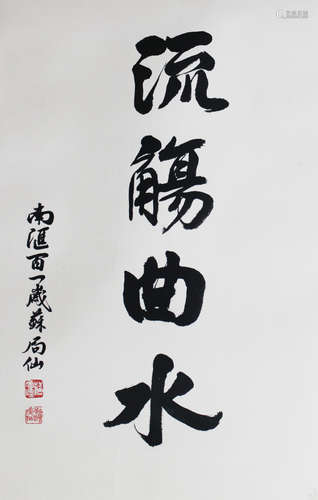 流觴曲水
南滙百一歲蘇局仙